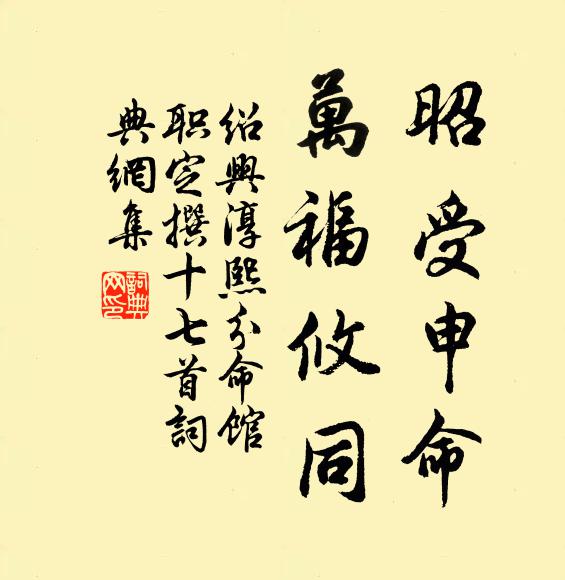 昭受申命
萬福攸同
绍興淳熙分命館
职定撰十七首詞
典網集
詞典
网印